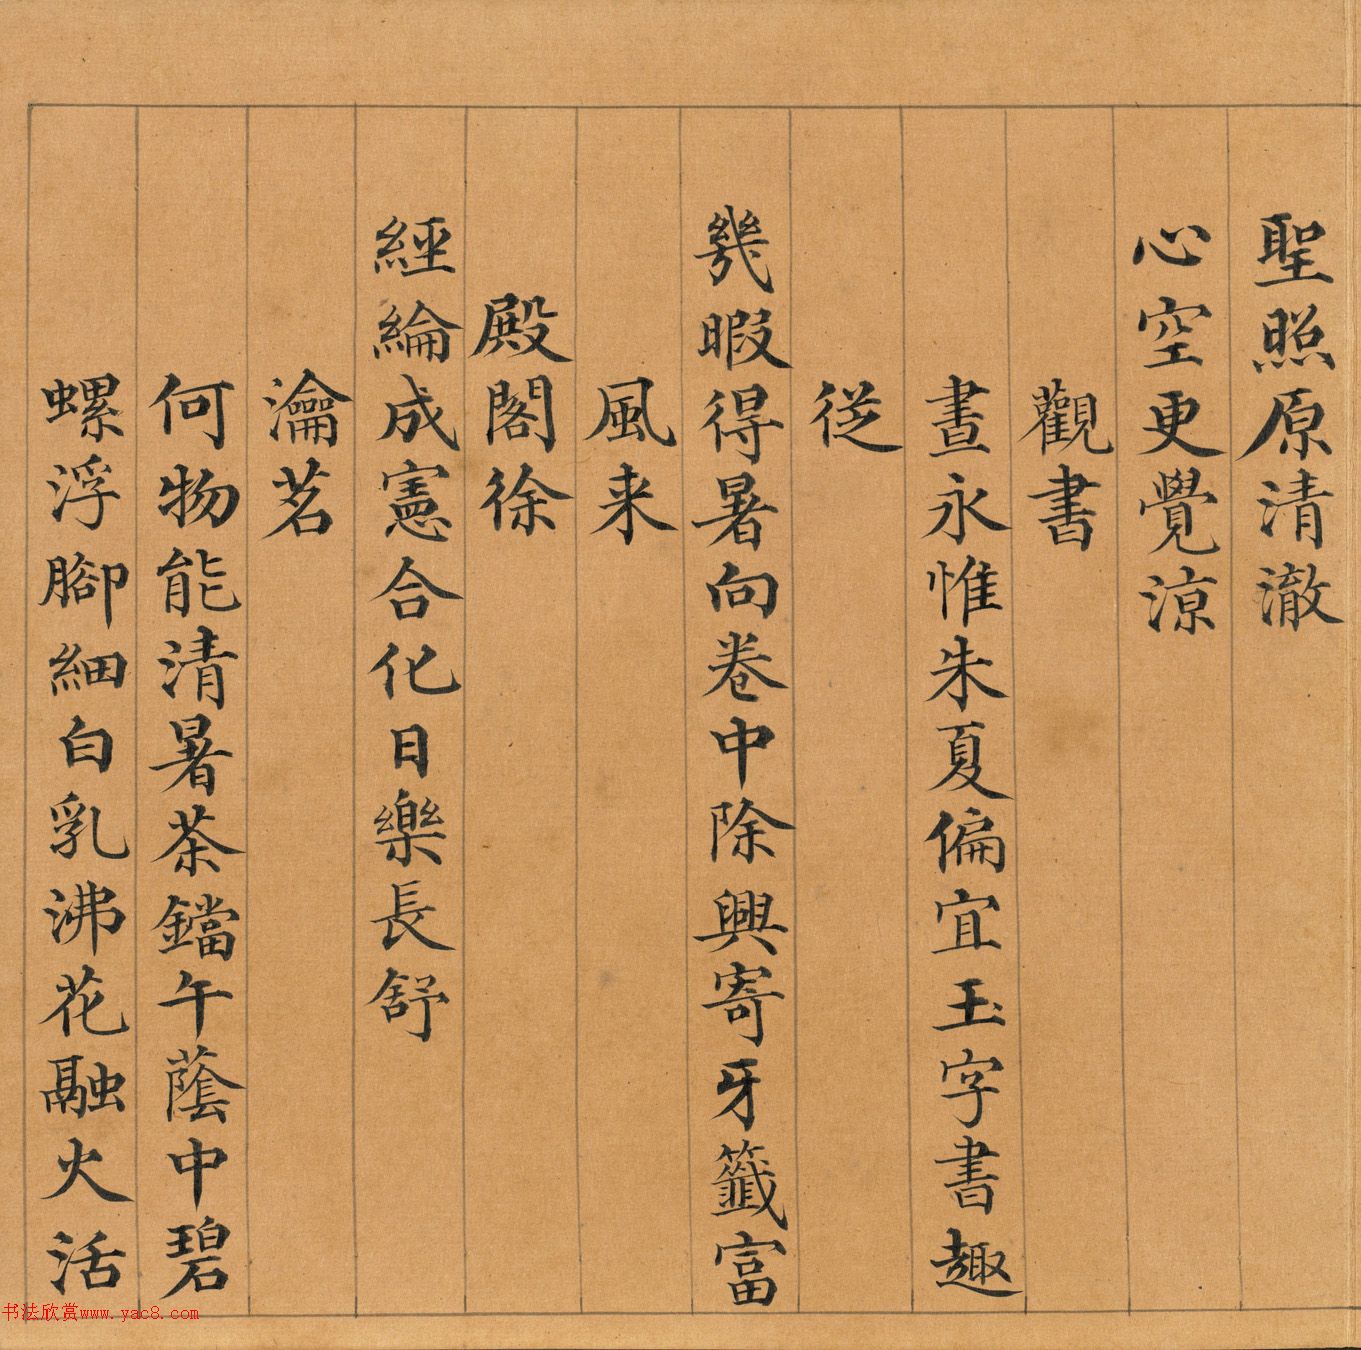 聖照原清澈
心空更覺涼
觀書
晝永惟朱夏偏宜玉字書趣
從
幾暇得暑向卷中除興寄牙籤富
風来
殿閣徐
經綸成憲合化日樂長舒
瀹茗
何物能清暑茶鐺午蔭中碧
螺浮腳細白乳沸花融火活
书法欣赏www.yac8.com